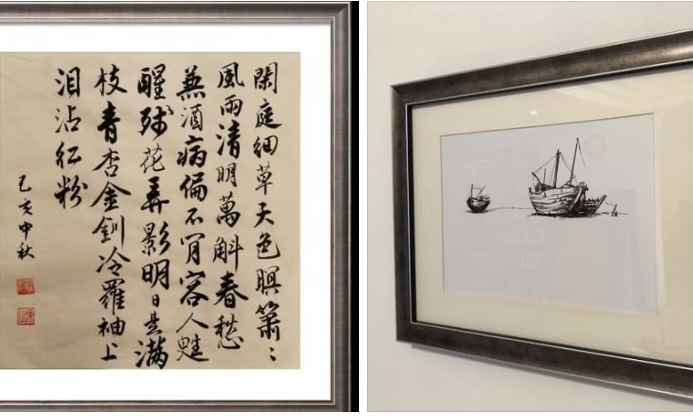 閑庭細草天色暝簫〻
風雨清明萬斛春愁
兼酒病偏不肯容人甦
醒殘花弄影明日是滿
枝青杏金釧冷羅袖上
泪沾紅粉
己亥中秋